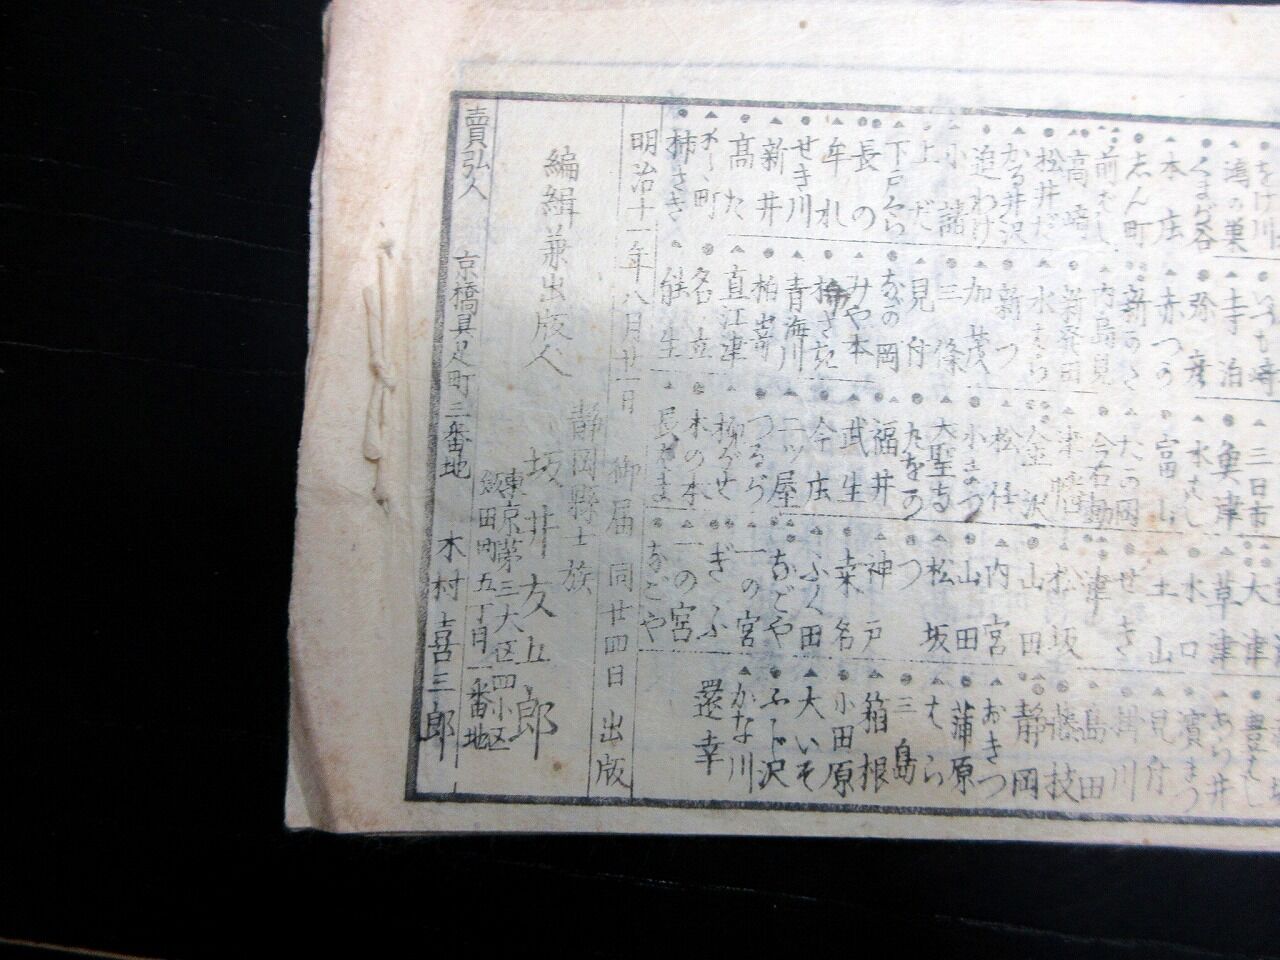 をけ川
鴻の巣
くまが谷
本庄
志ん町
前ばし
高崎
松井だ
かる井沢
追わけ
小諸
上だ
下戸くら
長の
牟れ
せき川
新井
高た
あら町
柿さき
寺泊
弥彦
赤つか
新かた
内島見
新発田
水はら
新つ
加茂
三條
見付
なが岡
みや本
柏さき
青海川
柏嵜
直江津
名立
能生
三日市
魚津
水はし
富山
たか岡
今石動
津幡
金沢
松任
小まつ
大聖寺
福井
武生
今庄
二ツ屋
つるが
柳がせ
木の本
長はま
大津
草津
水口
土山
せき
津
松坂
山田
内宮
山田
松坂
つ
神戸
桒名
ふく田
なごや
一の宮
ぎふ
一の宮
なごや
豊はし
あら井
濱まつ
見付
掛川
島田
藤枝
静岡
おきつ
蒲原
はら
三島
箱根
小田原
大いそ
ふじ沢
かな川
還幸
明治十一年八月廿一日 御届 同廿四日 出版
編緝兼出版人
静岡縣士族
坂井友五郎
東京第三大区四小区
飯田町五丁目一番地
賣弘人
京橋具足町三番地
木村喜三郎